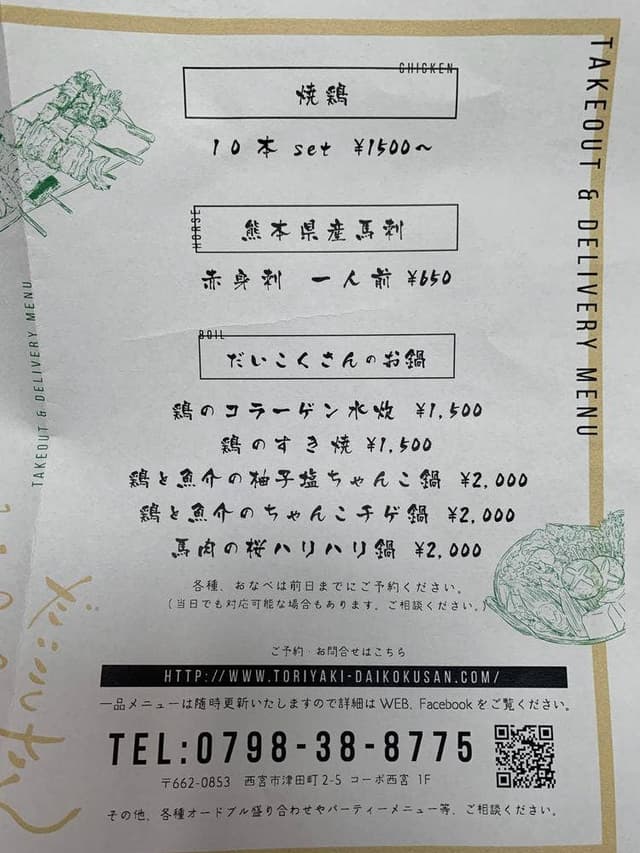 CHICKEN
焼鶏
10本 set ¥1500～
HORSE
熊本県産馬刺
赤身刺 一人前 ¥650
BOIL
だいこくさんのお鍋
鶏のコラーゲン水炊 ¥1,500
鶏のすき焼 ¥1,500
鶏と魚介の柚子塩ちゃんこ鍋 ¥2,000
鶏と魚介のちゃんこチゲ鍋 ¥2,000
馬肉の桜ハリハリ鍋 ¥2,000
各種、おなべは前日までにご予約ください。
(当日でも対応可能な場合もあります。ご相談ください。)
ご予約・お問合せはこちら
HTTP://WWW.TORIYAKI-DAIKOKUSAN.COM/
一品メニューは随時更新いたしますので詳細は WEB、Facebook をご覧ください。
TEL:0798-38-8775
〒662-0853 西宮市津田町2-5 コーポ西宮 1F
その他、各種オードブル盛り合わせやパーティーメニュー等、ご相談ください。
TAKEOUT & DELIVERY MENU
TAKEOUT & DELIVERY MENU